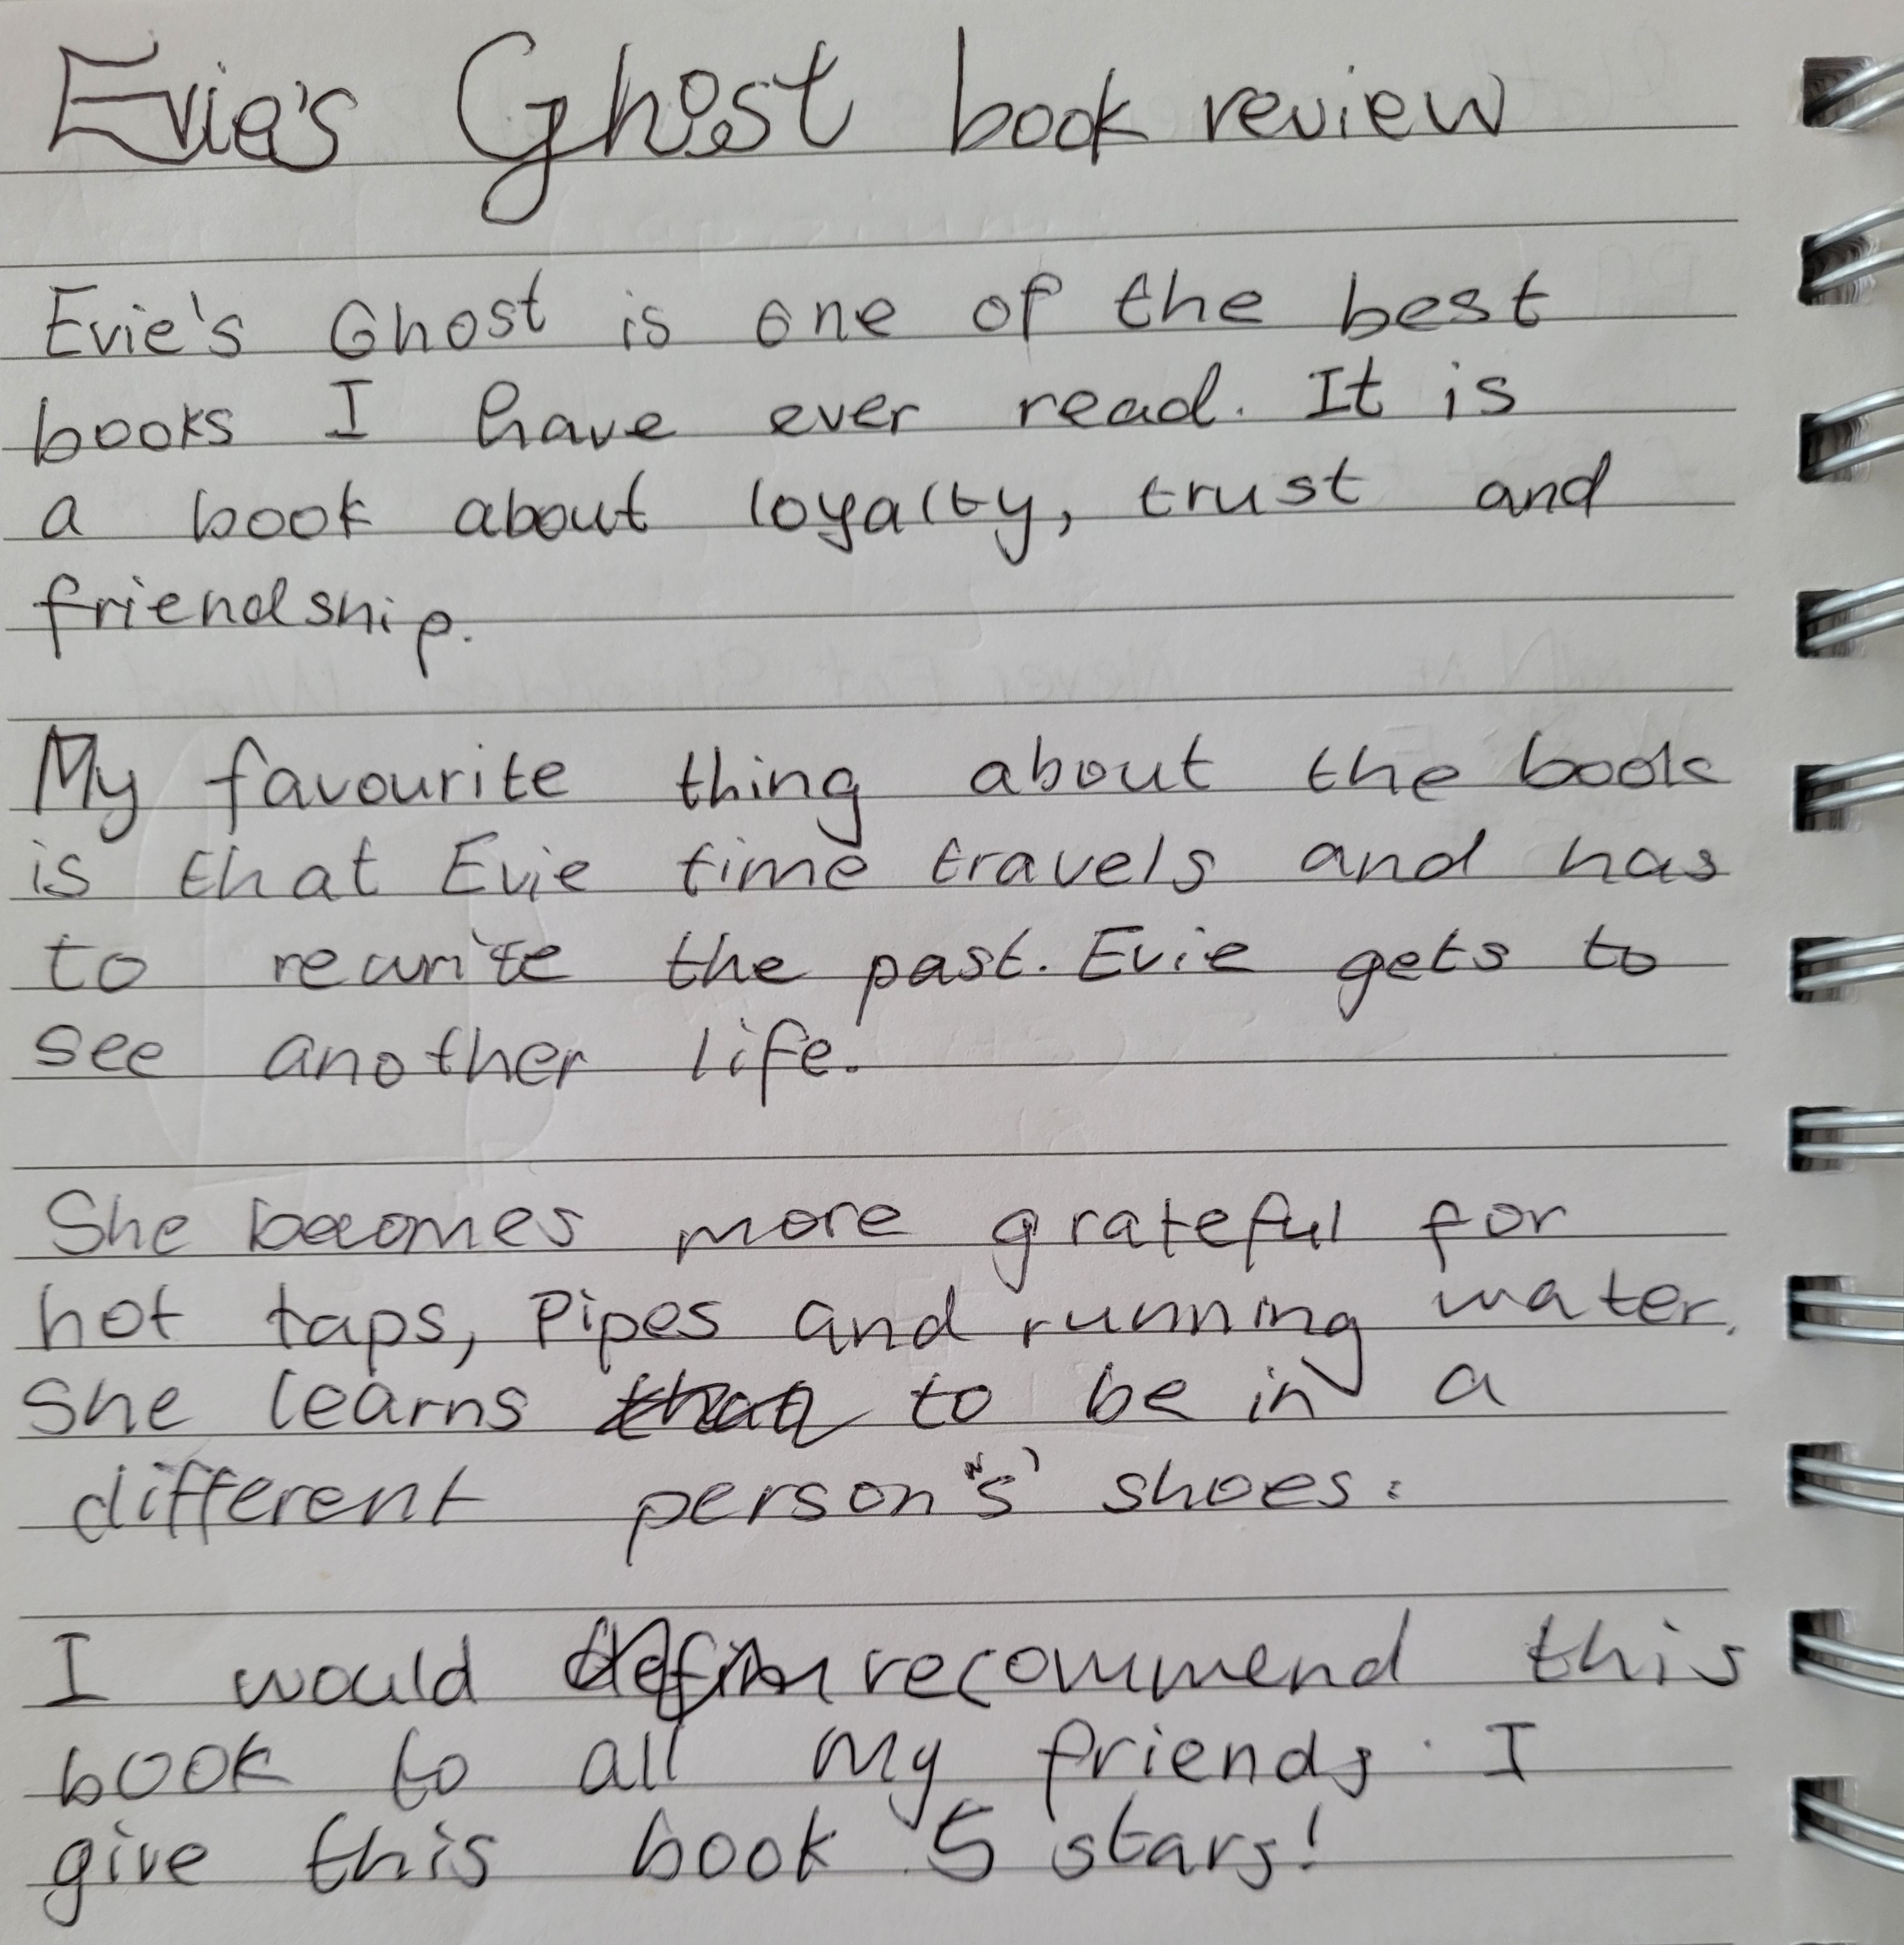 Evie's Ghost book review
Evie's Ghost is one of the best
books I have ever read. It is
a book about loyalty, trust and
friendship.
My favourite thing about the book
is that Evie time travels and has
to rewrite the past. Evie gets to
see another life.
She becomes more grateful for
hot taps, Pipes and running water.
She learns to be in a
different person's shoes.
I would recommend this
book to all my friends. I
give this book 5 stars!